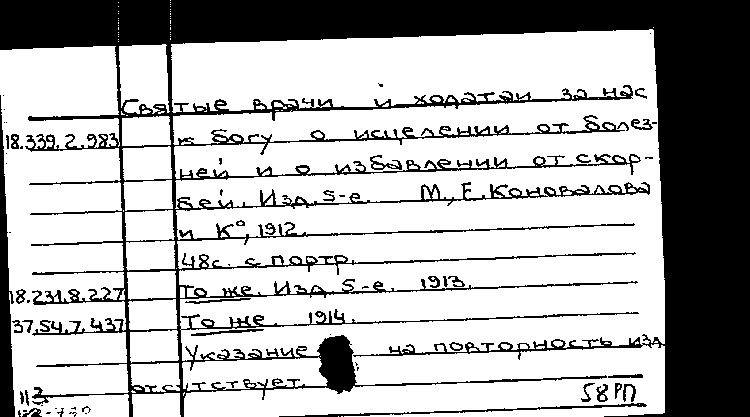 Святые врачи и ходатаи за нас
18.339.2.983 к богу о исцелении от болез-
ней и о избавлении от скор-
бей. Изд. 5-е. М., Е. Коновалова
и К°, 1912.
48с. с портр.
18.231.8.227 То же. Изд. 5-е. 1913.
37.54.7.437 То же. 1914.
Указание на повторность изд.
отсутствует.
58РП